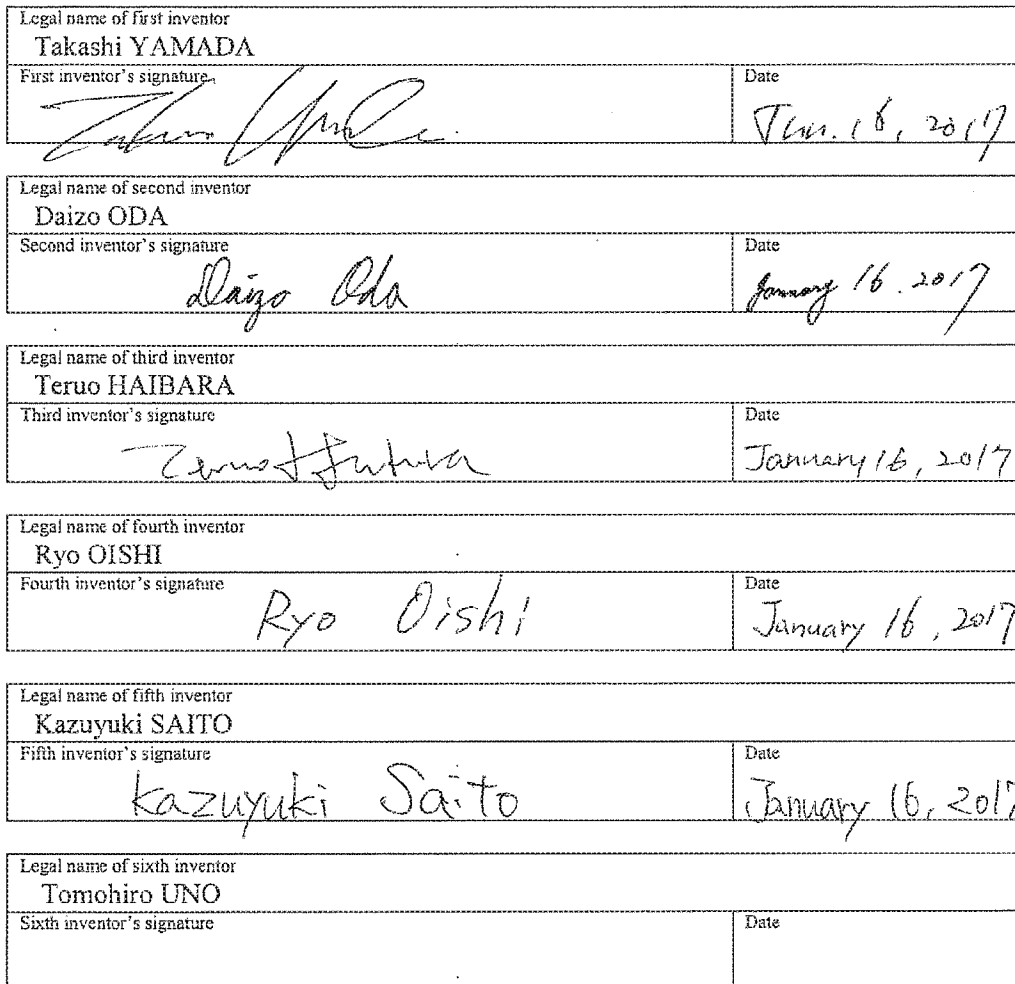 Legal name of first inventor
Takashi YAMADA
First inventor's signature
Date
Jan. 16, 2017
Legal name of second inventor
Daizo ODA
Second inventor's signature
Date
Daizo Oda
January 16. 2017
Legal name of third inventor
Teruo HAIBARA
Third inventor's signature
Date
January 16, 2017
Legal name of fourth inventor
Ryo OISHI
Fourth inventor's signature
Date
Ryo Oishi
January 16, 2017
Legal name of fifth inventor
Kazuyuki SAITO
Fifth inventor's signature
Date
Kazuyuki Saito
January 16, 2017
Legal name of sixth inventor
Tomohiro UNO
Sixth inventor's signature
Date